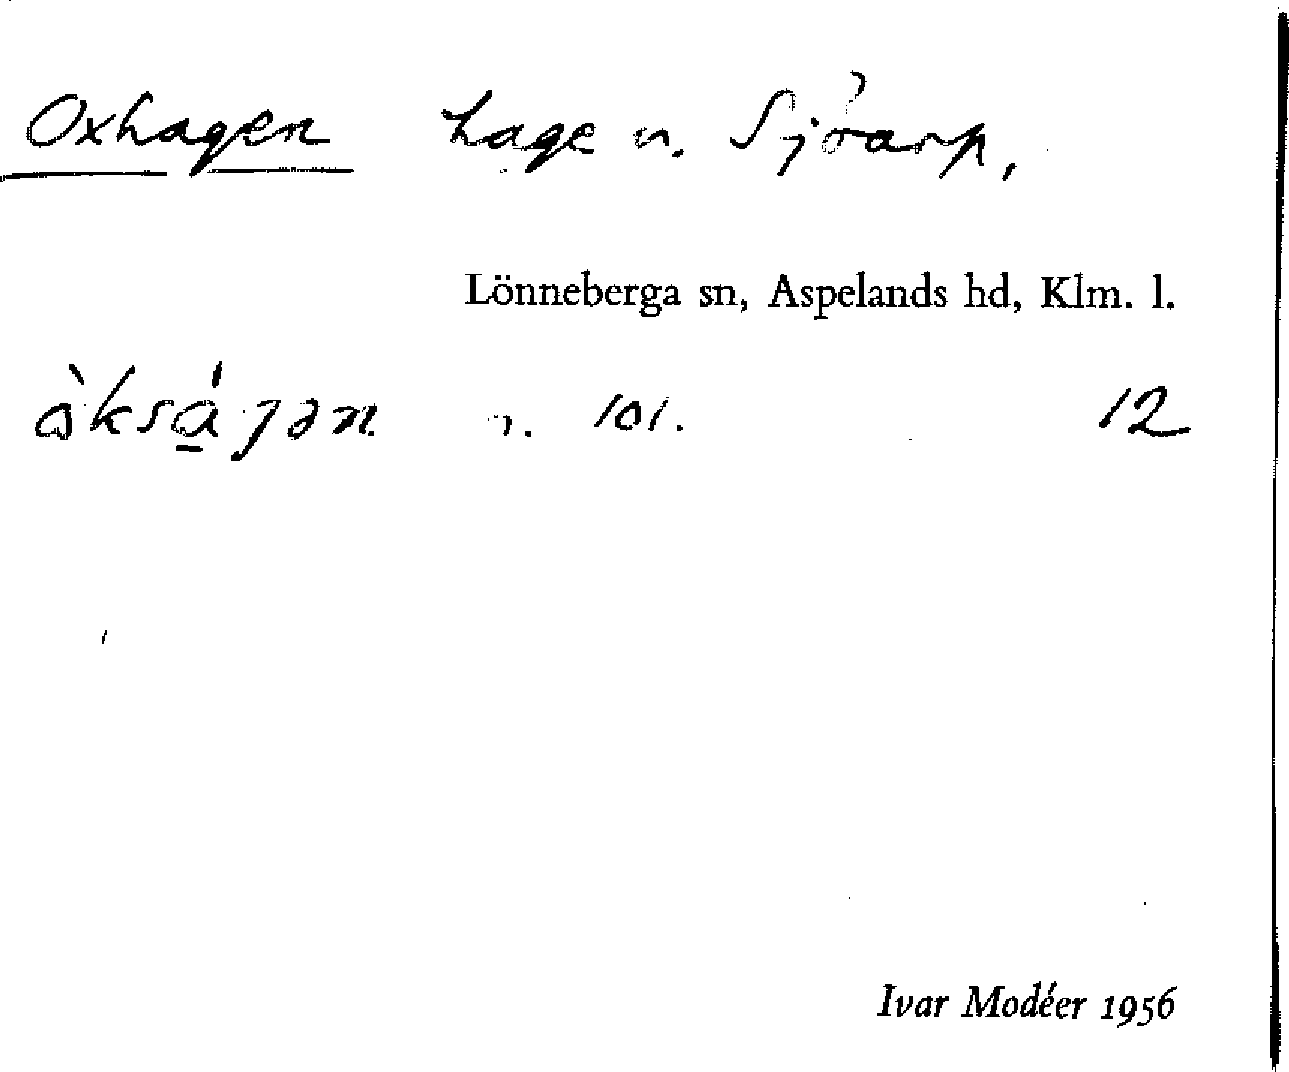 Oxhagen hage n. Sjöarp,
Lönneberga sn, Aspelands hd, Klm. l.
òksá̱gən n. 101. 12
Ivar Modéer 1956